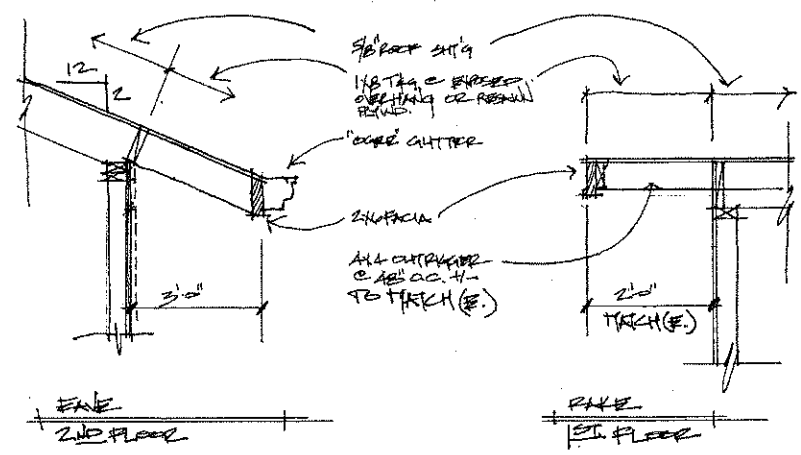 5/8" ROOF SHT'G
1X8 T&G @ EXPOSED
OVERHANG OR RESAWN
PLYWD.
12
2
"OGEE" GUTTER
2X6 FACIA
4X4 OUTRIGGER
@ 48" O.C. +/-
TO MATCH (E.)
3'-0"
2'-0"
MATCH (E.)
EAVE
2ND FLOOR
RAKE
1ST. FLOOR